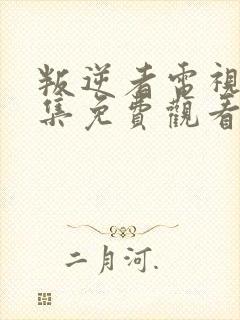 叛逆者電視
集免費觀看
二月河.